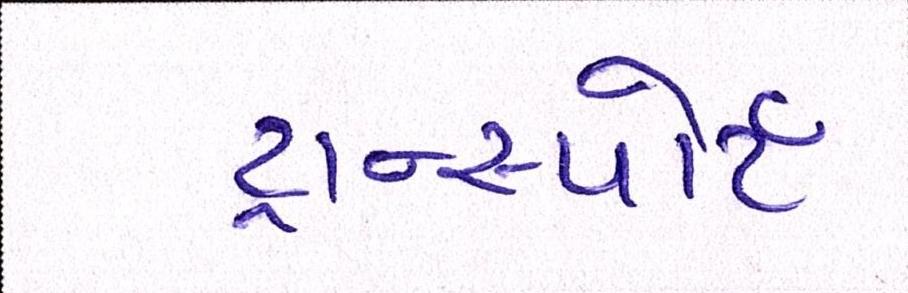 ટ્રાન્સ્પોર્ટ